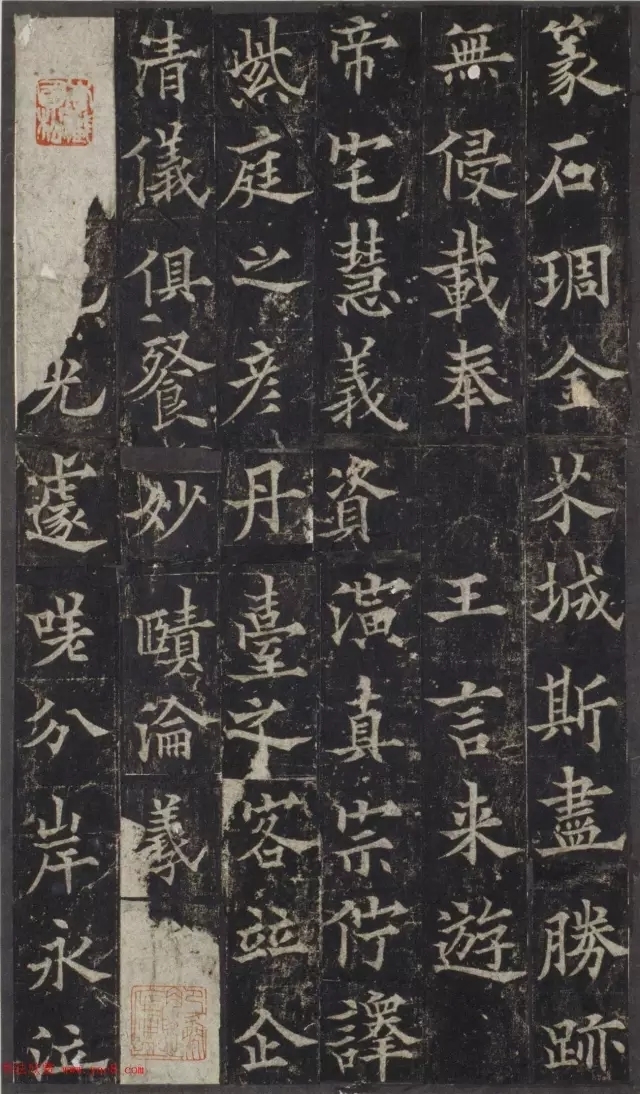 篆石琱金芥城斯盡勝跡
無侵載奉王言来遊
帝宅慧義資演真宗佇譯
紫庭之彦丹臺之客並企
清儀俱餐妙賾淪義
光遽嗟分岸永泣